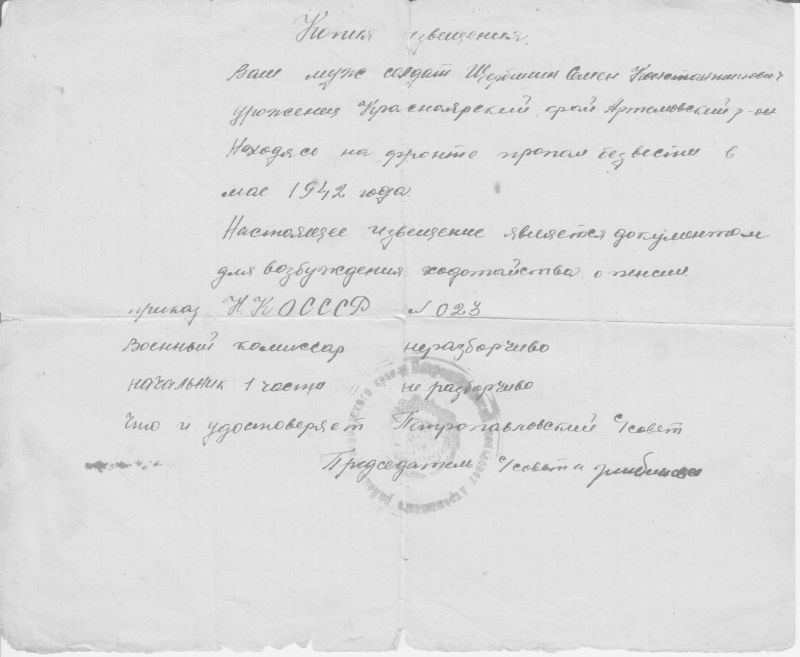 Копия извещения.
Ваш муж солдат Щербинин Семен Константинович
уроженец Красноярский край Артемовский р-он
Находясь на фронте пропал безвести в
мае 1942 года.
Настоящее извещение является документом
для возбуждения ходотайства о пенсии.
приказ Н.КОСССР №023
Военный комиссар неразборчиво
начальник 1 части не разборчиво
Что и удостоверяет Петропавловский С/совет
Председатель С/совета